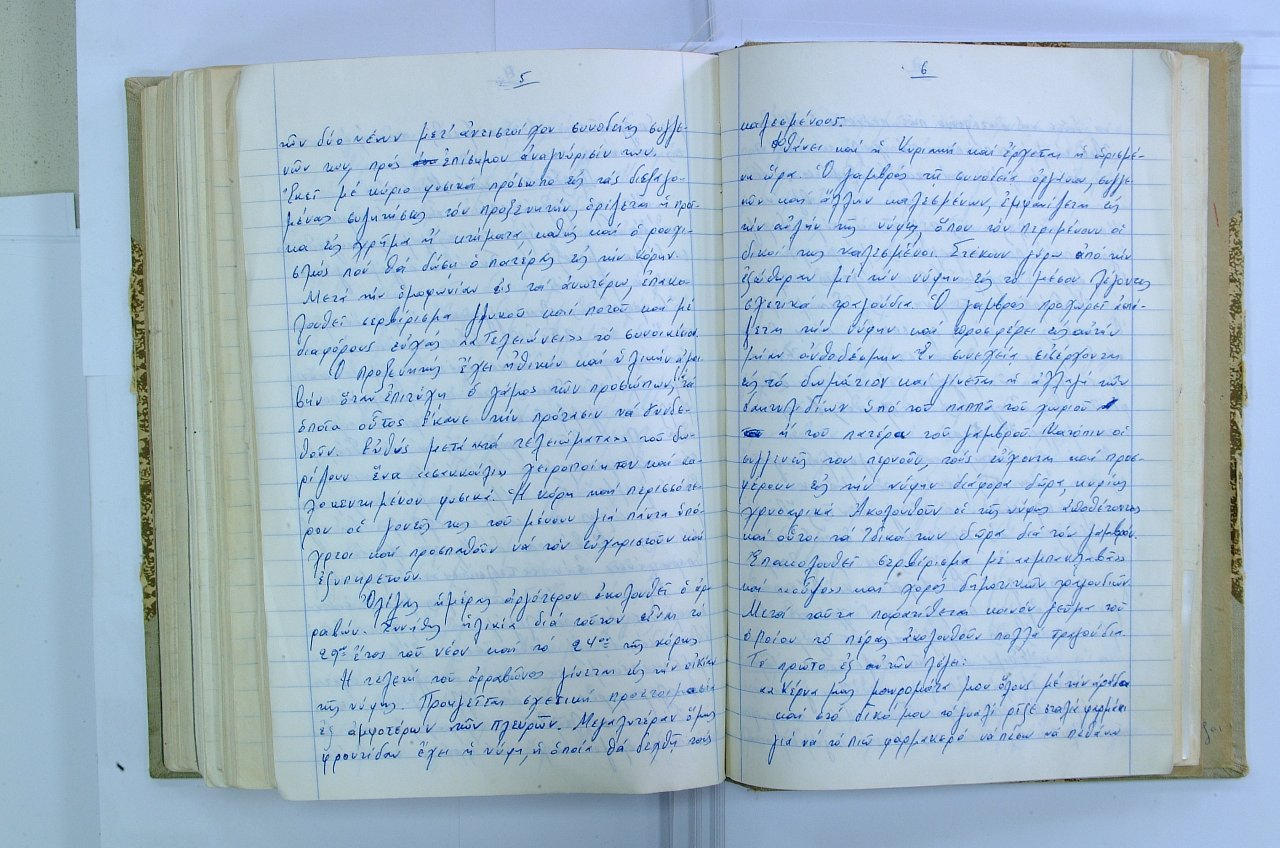 5
τῶν δύο νέων μετ' ἀντιστοίχου συνοδείας συγγε-
νῶν των, πρὸς ἐπίσημον ἀναγνώρισίν των.
Ἐκεῖ μέ κύριο φυσικά πρόσωπο εἰς τάς διεξαγο-
μένας συζητήσεις τόν προξενητήν, ὁρίζεται ἡ προῖ-
κα εἰς χρῆμα ἤ κτήματα καθώς καί ὁ ρουχι-
σμός πού θά δώση ὁ πατέρας εἰς τήν κόρην.
Μετά τήν ὁμοφωνίαν εἰς τά ἀνωτέρω, ἐπακο-
λουθεῖ σερβίρισμα γλυκοῦ καί ποτοῦ καί μέ
διαφόρους εὐχάς «Τελειώνει» τό συνοικέσιο.
Ὁ προξενητής ἔχει ἠθικήν καί ὑλικήν ἀμοι-
βήν ὅταν ἐπιτύχη ὁ γάμος τῶν προσώπων, τά
ὁποῖα οὗτος ἔκανε τήν πρότασιν νά συνδε-
θοῦν. Εὐθύς μετά τά τελειώματα τοῦ δω-
ρίζουν ἕνα «σακκούλι» χειροποίητον καί κα-
λοκεντημένον φυσικά. Ἡ κόρη καί περισσότε-
ρον οἱ γονεῖς της τοῦ μένουν γιά πάντα ὑπό-
χρεοι καί προσπαθοῦν νά τόν εὐχαριστοῦν καί
ἐξυπηρετοῦν.
Ὀλίγας ἡμέρας ἀργότερον ἀκολουθεῖ ὁ ἀρ-
ραβών. Συνήθης ἡλικία διά τοῦτον εἶναι τό
29ον ἔτος τοῦ νέου καί τό 24ον τῆς κόρης.
Ἡ τελετή τοῦ ἀρραβῶνος γίνεται εἰς τήν οἰκίαν
τῆς νύφης. Προηγεῖται σχετική προετοιμασία
ἐξ ἀμφοτέρων τῶν πλευρῶν. Μεγαλυτέραν ὅμως
φροντίδαν ἔχει ἡ νύφη, ἡ ὁποία θά δεχθῆ τούς
6
καλεσμένους.
Φθάνει καί ἡ Κυριακή καί ἔρχεται ἡ ὡρισμέ-
νη ὥρα. Ὁ γαμβρός τῆ συνοδεία ὀργάνων, συγγε-
νῶν καί ἄλλων καλεσμένων, ἐμφανίζεται εἰς
τήν αὐλήν τῆς νύφης ὅπου τόν περιμένουν οἱ
δικοί της καλεσμένοι. Στέκουν γύρω ἀπό τήν
ἐξώθυραν μέ τήν νύφην εἰς τό μέσον λέγοντες
σχετικά τραγούδια. Ὁ γαμβρός προχωρεῖ
τήν νύφην καί προσφέρει εἰς αὐτήν
μίαν ἀνθοδέσμην. Ἐν συνεχεία εἰσέρχονται
εἰς τό δωμάτιον καί γίνεται ἡ ἀλλαγή τῶν
δακτυλιδίων ὑπό τοῦ παππᾶ τοῦ χωριοῦ
ἤ τοῦ πατέρα τοῦ γαμβροῦ. Κατόπιν οἱ
συγγενεῖς του περνοῦν, τούς εὔχονται καί προσ-
φέρουν εἰς τήν νύφην διάφορα δῶρα, κυρίως
χρυσαφικά. Ἀκολουθοῦν οἱ τῆς νύφης ἀποθέτοντες
καί οὗτοι τά ἰδικά των δῶρα διά τόν γαμβρόν.
Ἐπακολουθεῖ σερβίρισμα μέ «μπακλαβᾶ»
καί «κούφο» καί χορός δημοτικῶν τραγουδιῶν.
Μετά ταῦτα παρατίθεται κοινόν γεῦμα τοῦ
ὁποίου τό πέρας ἀκολουθοῦν πολλά τραγούδια.
Τό πρῶτο ἐξ αὐτῶν λέγει:
«Κέρνα μας μαυρομάτα μου ὅλους μέ τήν ἀράδα
καί στό δικό μου τό γυαλί ρῖξε σταλιά φαρμάκι
γιά νά τό πιῶ φαρμακερό νά πέσω νά πεθάνω